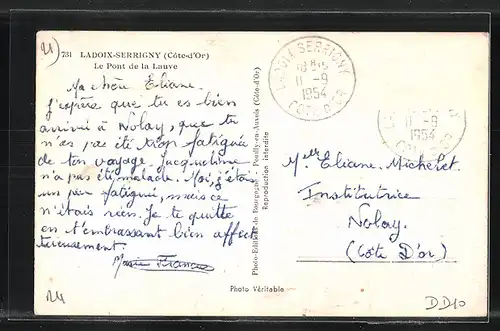 21)
731 LADOIX-SERRIGNY (Côte-d'Or)
Le Pont de la Lauve
Ma chère Eliane.
J'espère que tu es bien
arrivé à Nolay, que tu
n'as pas été trop fatiguée
de ton voyage. Jacqueline
n'a pas été malade. Moi, j'étais
un peu fatigué, mais ce
n'étais rien. Je te quitte
en t'embrassant bien affec
tueusement.
Photo-Editions de Bourgogne - Pouilly-en-Auxois (Côte-d'Or)
Reproduction interdite
LADOIX SERRIGNY
11 -9
1954
COTE D'OR
11 -9
1954
Melle Eliane Michelet.
Institutrice
Nolay.
(Côte D'or)
Photo Véritable
DD10